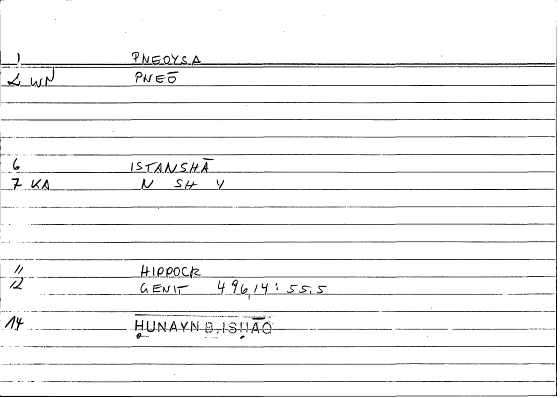 1 PNEOYSA
2 WN PNEŌ
6 ISTANSHĀ
7 KA N SH Y
11 HIPPOCR
12 GENIT 496,14 : 55.5
14 ḤUNAYN B. ISḤĀQ